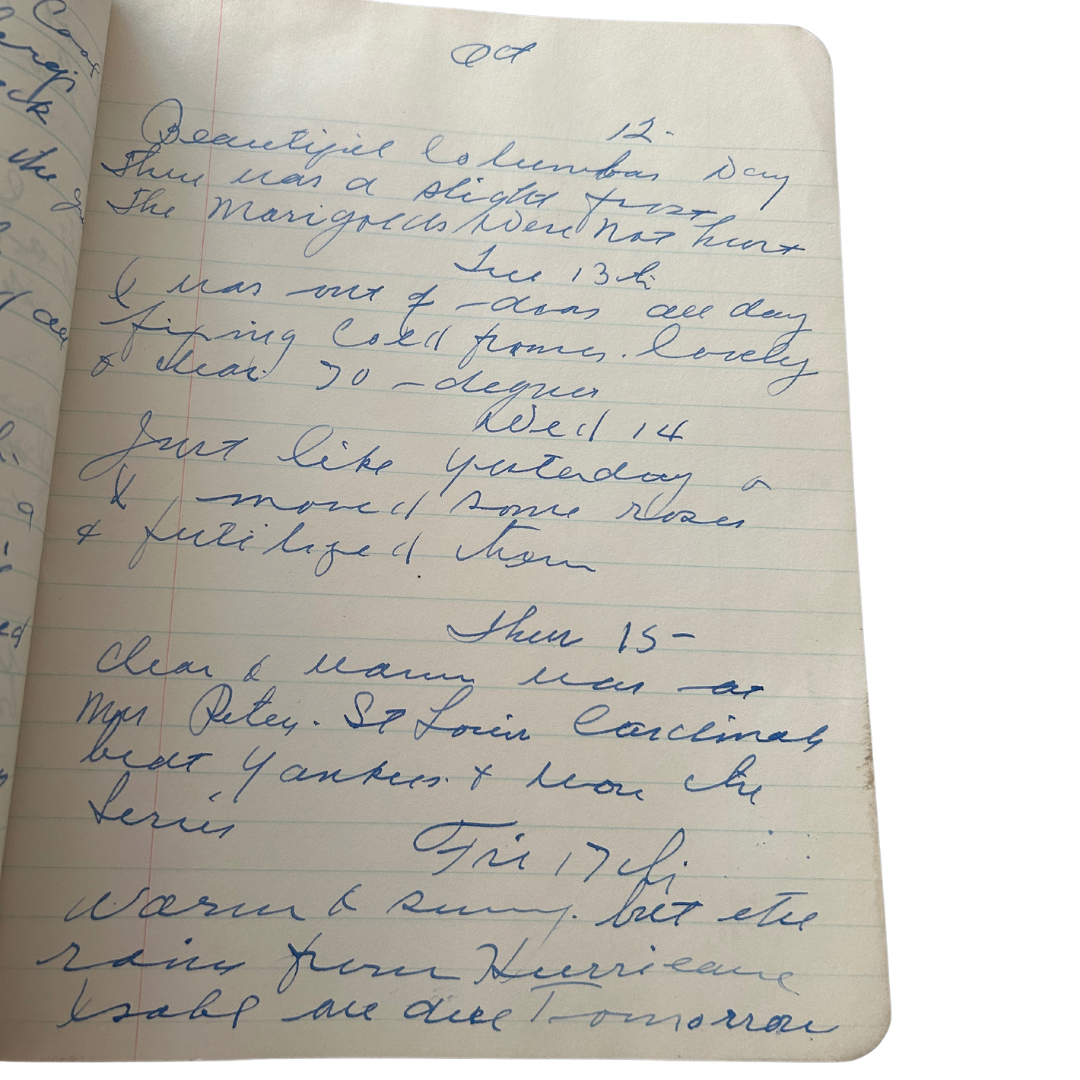 Oct
12-
Beautiful Columbus Day
There was a slight frost
The Marigolds Were Not hurt
Tue 13th
I was out of-doors all day
fixing Cold frames. lovely
& clear 70-degrees
Wed 14
Just like yesterday
I moved some roses
& fertilized them
Thur 15-
Clear & warm was at
Mrs Petey. St Louis Cardinals
beat Yankees & won the
Series
Fri 17th
Warm & sunny. but the
rains from Hurricane
Isabel are due Tomorrow